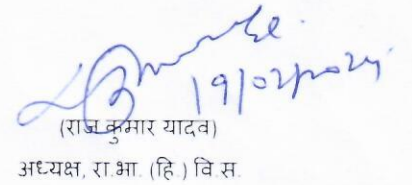 19/02/2024
(राज कुमार यादव)
अध्यक्ष, रा.भा. (हि.) वि.स.